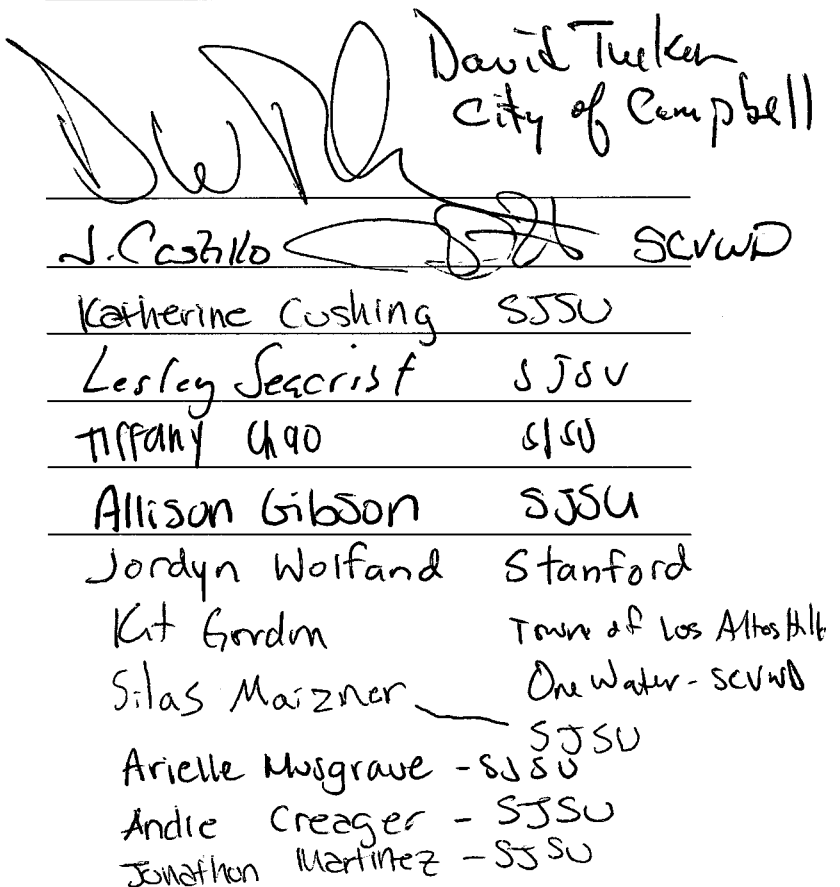 David Tucker
City of Campbell
J. Castillo SCVWD
Katherine Cushing SJSU
Lesley Seacrist SJSU
Tiffany Chao SJSU
Allison Gibson SJSU
Jordyn Wolfand Stanford
Kit Gordon Town of Los Altos Hills
One Water - SCVWD
Silas Maizner SJSU
Arielle Musgrave - SJSU
Andie Creager - SJSU
Jonathon Martinez - SJSU